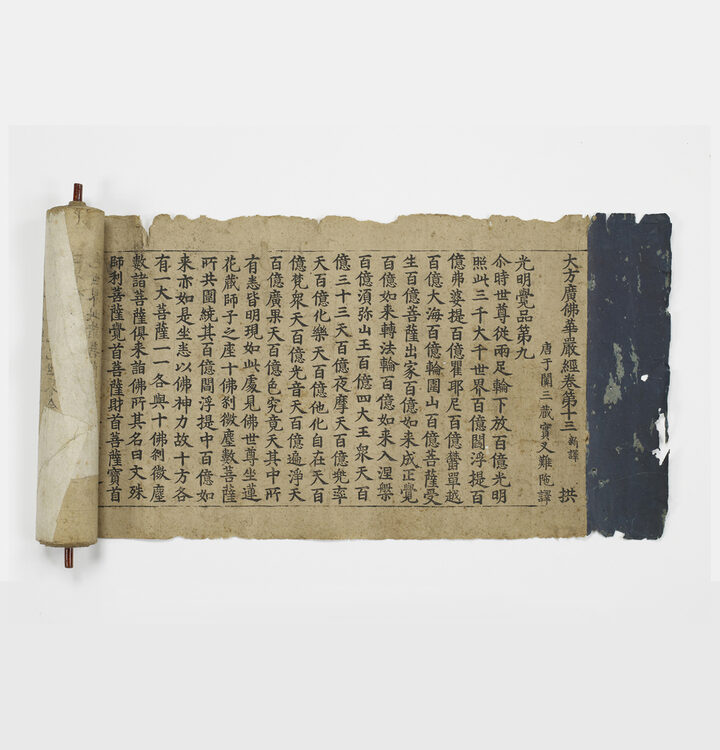 大方廣佛華嚴經卷第十三 新譯 拱
唐于闐三藏實叉難陁譯
光明覺品第九
尒時世尊從兩足輪下放百億光明
照此三千大千世界百億閻浮提百
億弗婆提百億瞿耶尼百億欝單越
百億大海百億輪圍山百億菩薩受
生百億菩薩出家百億如來成正覺
百億如來轉法輪百億如來入涅槃
百億湏弥山王百億四大王衆天百
億三十三天百億夜摩天百億兜率
天百億化樂天百億他化自在天百
億梵衆天百億光音天百億遍淨天
百億廣果天百億色究竟天其中所
有悉皆明現如此處見佛世尊坐蓮
花藏師子之座十佛剎微塵數菩薩
所共圍繞其百億閻浮提中百億如
來亦如是坐悉以佛神力故十方各
有一大菩薩一一各與十佛剎微塵
數諸菩薩俱來詣佛所其名曰文殊
師利菩薩覺首菩薩財首菩薩寶首